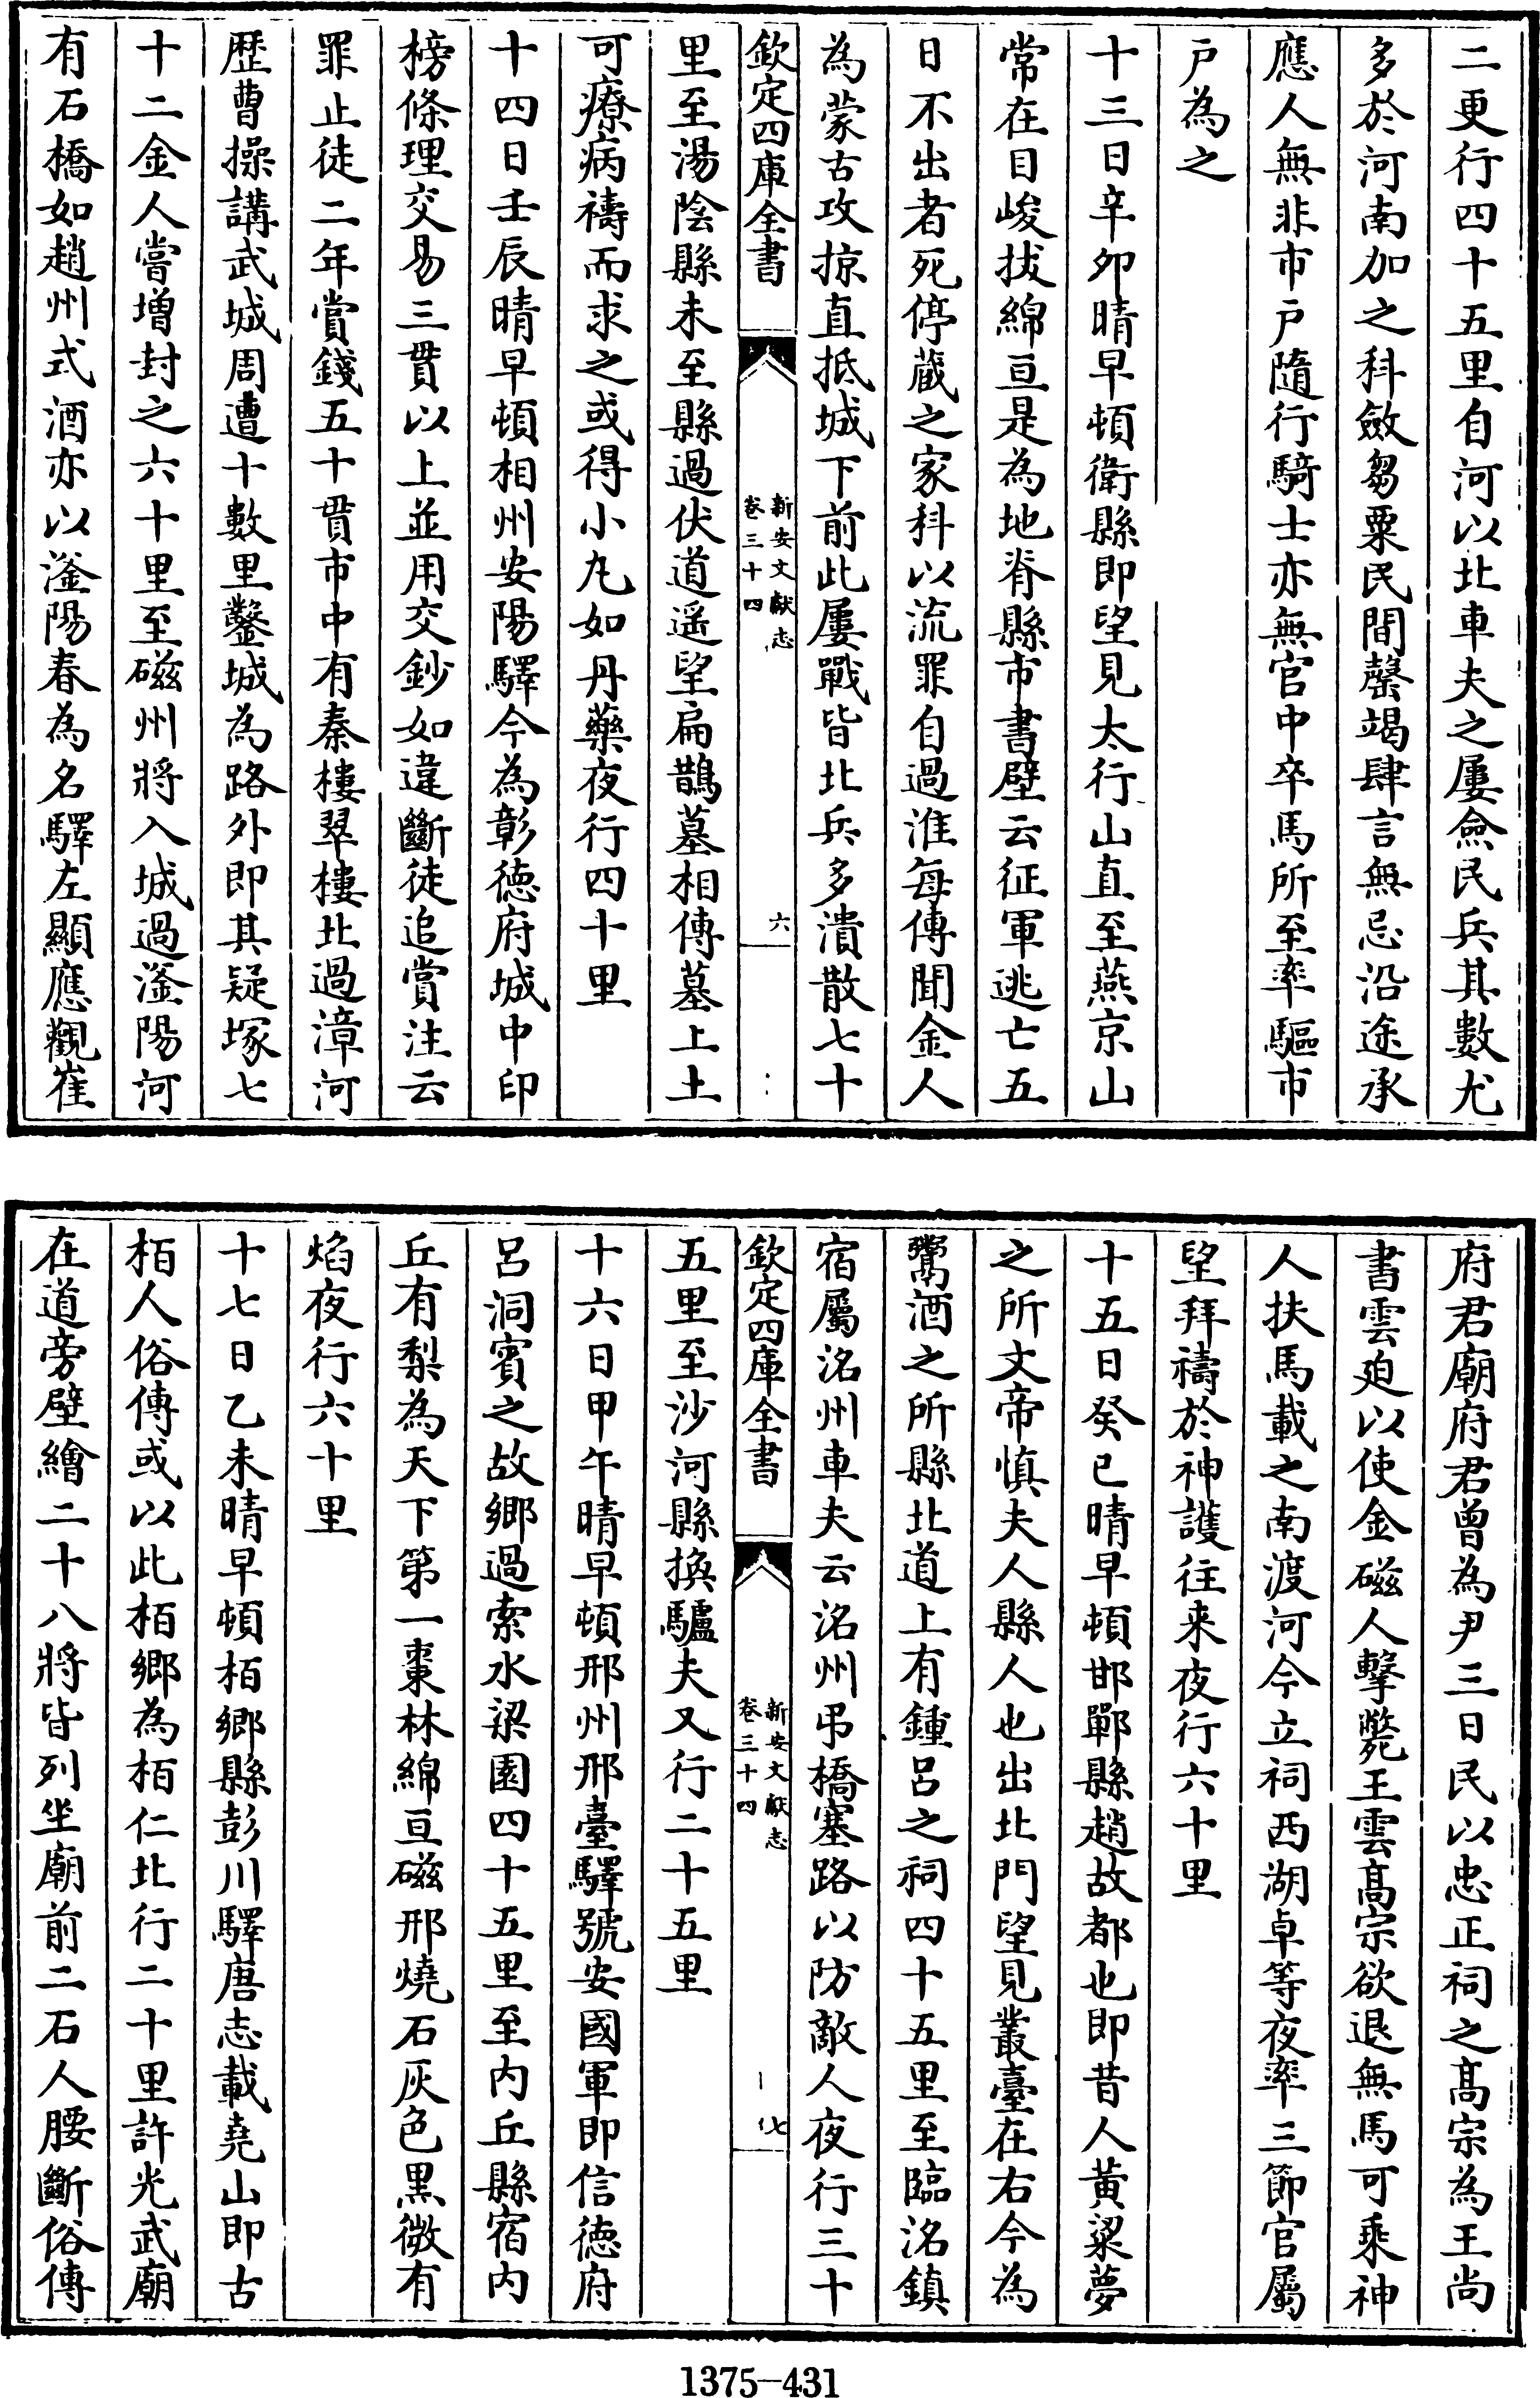 二更行四十五里自河以北車夫之屢僉民兵其數尤
多於河南加之科斂芻粟民間罄竭肆言無忌沿途承
應人無非市戶隨行騎士亦無官中卒馬所至率驅市
戶為之
十三日辛卯晴早頓衛縣即望見太行山直至燕京山
常在目峻拔綿亘是為地脊縣市書壁云征軍逃亡五
日不出者死停藏之家科以流罪自過淮每傳聞金人
為蒙古攻掠直抵城下前此屢戰皆北兵多潰散七十
欽定四庫全書
新安文獻志
卷三十四
六
里至湯陰縣未至縣過伏道遥望扁鵲墓相傳墓上土
可療病禱而求之或得小丸如丹藥夜行四十里
十四日壬辰晴早頓相州安陽驛今為彰德府城中印
榜條理交易三貫以上並用交鈔如違斷徒追賞注云
罪止徒二年賞錢五十貫市中有秦樓翠樓北過漳河
歴曹操講武城周遭十數里鑿城為路外即其疑塚七
十二金人嘗增封之六十里至磁州將入城過滏陽河
有石橋如趙州式酒亦以滏陽春為名驛左顯應觀崔
府君廟府君曾為尹三日民以忠正祠之髙宗為王尚
書雲廹以使金磁人擊斃王雲髙宗欲退無馬可乘神
人扶馬載之南渡河今立祠西湖卓等夜率三節官屬
望拜禱於神護往来夜行六十里
十五日癸巳晴早頓邯鄲縣趙故都也即昔人黃粱夢
之所文帝慎夫人縣人也出北門望見叢臺在右今為
鬻酒之所縣北道上有鍾呂之祠四十五里至臨洺鎮
宿屬洺州車夫云洺州弔橋塞路以防敵人夜行三十
欽定四庫全書
新安文獻志
卷三十四
七
五里至沙河縣換驢夫又行二十五里
十六日甲午晴早頓邢州邢臺驛號安國軍即信德府
呂洞賓之故鄉過索水梁園四十五里至内丘縣宿内
丘有梨為天下第一棗林綿亘磁邢燒石灰色黑微有
焰夜行六十里
十七日乙未晴早頓栢鄉縣彭川驛唐志載堯山即古
栢人俗傳或以此栢鄉為栢仁北行二十里許光武廟
在道旁壁繪二十八將皆列坐廟前二石人腰斷俗傳
1375-431